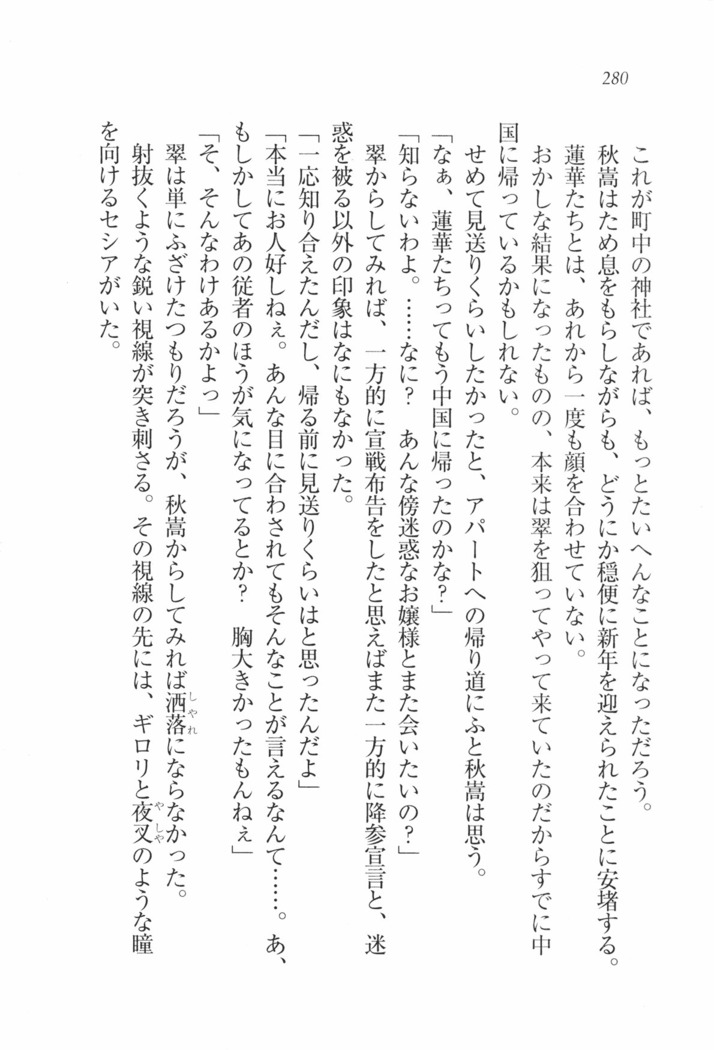 280
これが町中の神社であれば、もっとたいへんなことになっただろう。
秋嵩はため息をもらしながらも、どうにか穏便に新年を迎えられたことに安堵する。
蓮華たちとは、あれから一度も顔を合わせていない。
おかしな結果になったものの、本来は翠を狙ってやって来ていたのだからすでに中
国に帰っているかもしれない。
せめて見送りくらいしたかったと、アパートへの帰り道にふと秋嵩は思う。
「なぁ、蓮華たちってもう中国に帰ったのかな?」
「知らないわよ。……なに?　あんな傍迷惑なお嬢様とまた会いたいの?」
翠からしてみれば、一方的に宣戦布告をしたと思えばまた一方的に降参宣言と、迷
惑を被る以外の印象はなにもなかった。
「一応知り合えたんだし、帰る前に見送りくらいはと思ったんだよ」
「本当にお人好しねぇ。あんな目に合わされてもそんなことが言えるなんて……。あ、
もしかしてあの従者のほうが気になってるとか?　胸大きかったもんねぇ」
「そ、そんなわけあるかよっ」
翠は単にふざけたつもりだろうが、秋嵩からしてみれば洒落にならなかった。
射抜くような鋭い視線が突き刺さる。その視線の先には、ギロリと夜叉のような瞳
を向けるセシアがいた。